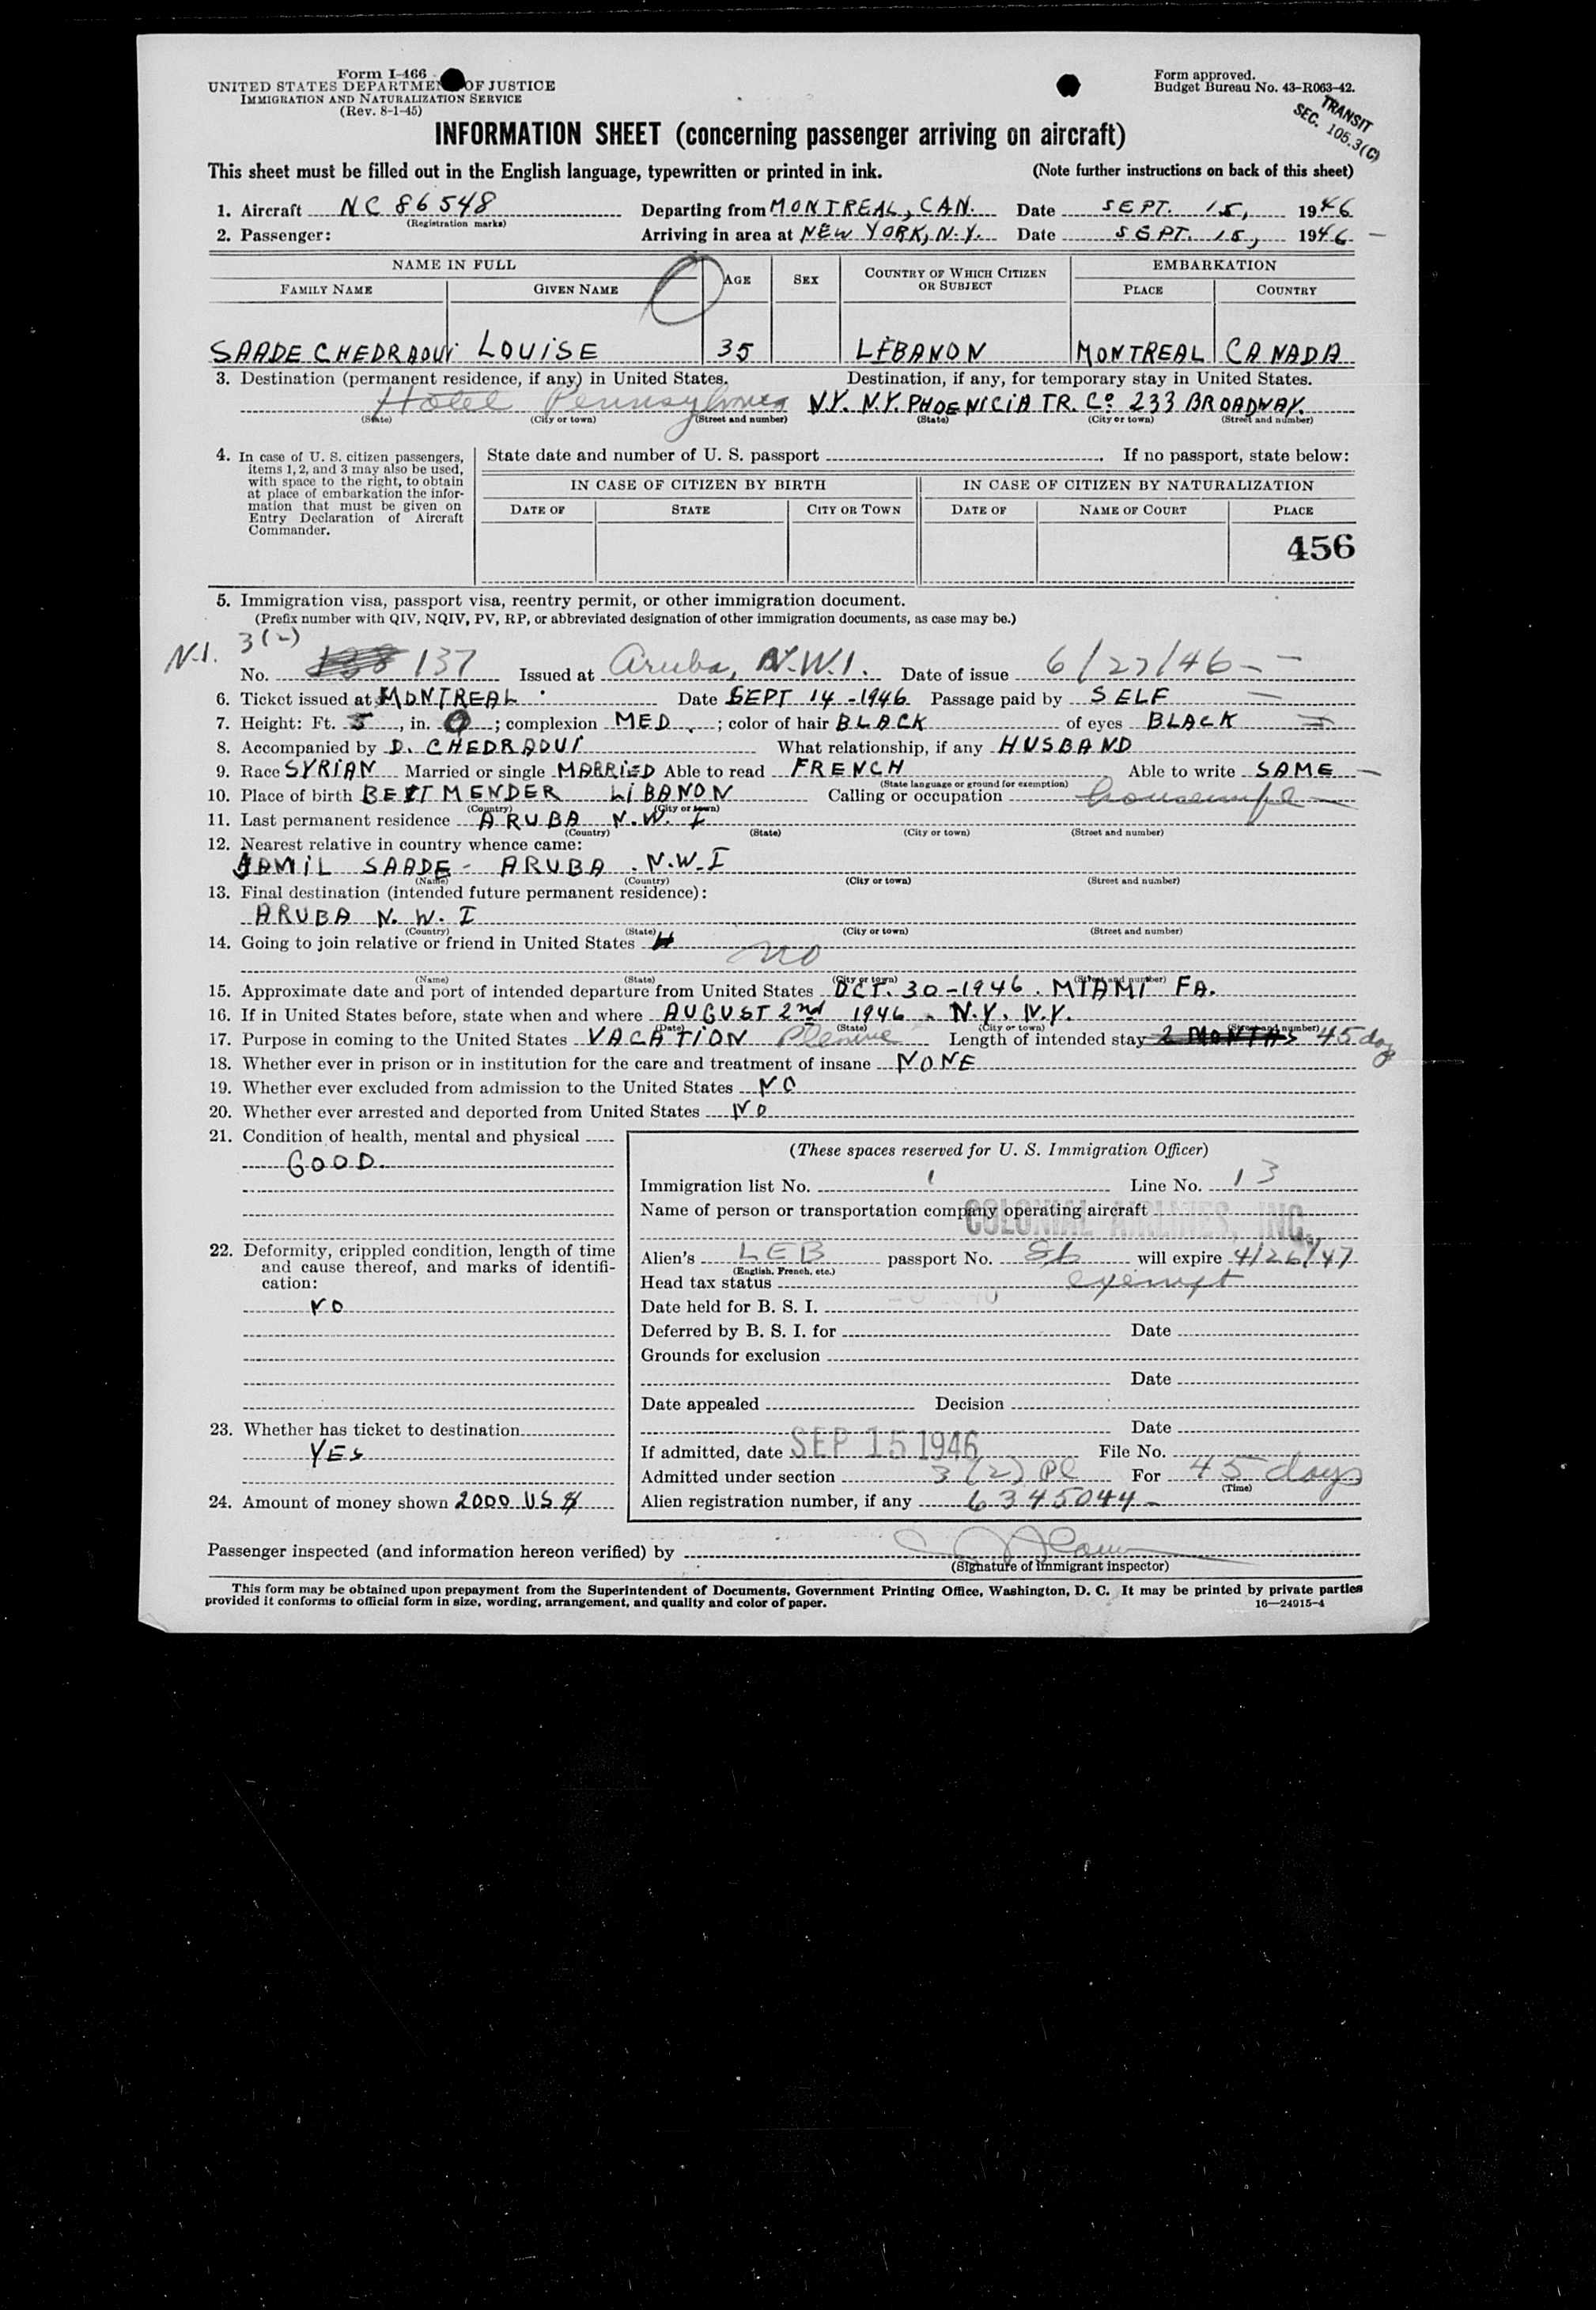 Form I-466
UNITED STATES DEPARTMENT OF JUSTICE
IMMIGRATION AND NATURALIZATION SERVICE
(Rev. 8-1-45)
Form approved.
Budget Bureau No. 43-R063-42.
TRANSIT
SEC. 105.3(C)
INFORMATION SHEET (concerning passenger arriving on aircraft)
This sheet must be filled out in the English language, typewritten or printed in ink. (Note further instructions on back of this sheet)
1. Aircraft NC 86548 Departing from MONTREAL, CAN. Date SEPT. 15, 1946
(Registration marks)
2. Passenger: Arriving in area at NEW YORK, N.Y. Date SEPT. 15, 1946 –
NAME IN FULL AGE SEX COUNTRY OF WHICH CITIZEN OR SUBJECT EMBARKATION
FAMILY NAME GIVEN NAME PLACE COUNTRY
SAADE CHEDRAOUI LOUISE 35 LEBANON MONTREAL CANADA
3. Destination (permanent residence, if any) in United States. Destination, if any, for temporary stay in United States.
Hotel Pennsylvania N.Y. N.Y. PHOENICIA TR. Co 233 BROADWAY.
(State) (City or town) (Street and number) (State) (City or town) (Street and number)
4. In case of U. S. citizen passengers, items 1, 2, and 3 may also be used, with space to the right, to obtain at place of embarkation the information that must be given on Entry Declaration of Aircraft Commander.
State date and number of U. S. passport . If no passport, state below:
IN CASE OF CITIZEN BY BIRTH IN CASE OF CITIZEN BY NATURALIZATION
DATE OF STATE CITY OR TOWN DATE OF NAME OF COURT PLACE
456
5. Immigration visa, passport visa, reentry permit, or other immigration document.
(Prefix number with QIV, NQIV, PV, RP, or abbreviated designation of other immigration documents, as case may be.)
N.I. 3(2)
No. 138 137 Issued at Aruba, N.W.I. Date of issue 6/27/46 – –
6. Ticket issued at MONTREAL Date SEPT 14-1946 Passage paid by SELF
7. Height: Ft. 5, in. 0; complexion MED.; color of hair BLACK of eyes BLACK
8. Accompanied by D. CHEDRAOUI What relationship, if any HUSBAND
9. Race SYRIAN Married or single MARRIED Able to read FRENCH Able to write SAME –
(State language or ground for exemption)
10. Place of birth BEIT MENDER LIBANON Calling or occupation housewife
(Country) (City or town)
11. Last permanent residence ARUBA N.W.I
(Country) (State) (City or town) (Street and number)
12. Nearest relative in country whence came:
JAMIL SAADE - ARUBA . N.W.I
(Name) (Country) (City or town) (Street and number)
13. Final destination (intended future permanent residence):
ARUBA N.W.I
(Country) (State) (City or town) (Street and number)
14. Going to join relative or friend in United States no
(Name) (State) (City or town) (Street and number)
15. Approximate date and port of intended departure from United States OCT. 30-1946. MIAMI FA.
16. If in United States before, state when and where AUGUST 2nd 1946 - N.Y. N.Y.
(Date) (State) (City or town) (Street and number)
17. Purpose in coming to the United States VACATION Pleasure Length of intended stay 2 MONTHS 45 day
18. Whether ever in prison or in institution for the care and treatment of insane NONE
19. Whether ever excluded from admission to the United States NO
20. Whether ever arrested and deported from United States NO
21. Condition of health, mental and physical
GOOD.
22. Deformity, crippled condition, length of time and cause thereof, and marks of identification:
NO
23. Whether has ticket to destination
YES
24. Amount of money shown 2000 US $
(These spaces reserved for U. S. Immigration Officer)
Immigration list No. 1 Line No. 13
Name of person or transportation company operating aircraft
COLONIAL AIRLINES, INC.
Alien's LEB passport No. 86 will expire 4/26/47
(English, French, etc.)
Head tax status exempt
Date held for B. S. I.
Deferred by B. S. I. for Date
Grounds for exclusion
Date
Date appealed Decision
Date
If admitted, date SEP 15 1946 File No.
Admitted under section 3(2) Pl For 45 days
(Time)
Alien registration number, if any 6345044 –
Passenger inspected (and information hereon verified) by
(Signature of immigrant inspector)
This form may be obtained upon prepayment from the Superintendent of Documents, Government Printing Office, Washington, D. C. It may be printed by private parties
provided it conforms to official form in size, wording, arrangement, and quality and color of paper. 16—24915-4